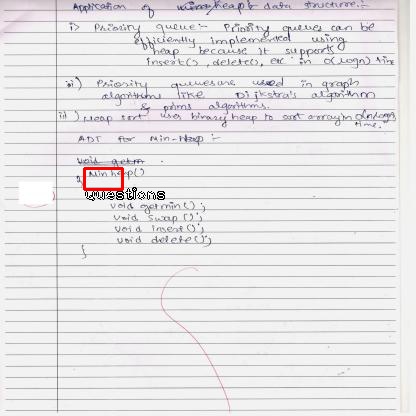 Application of binary heap data structure:-
i) Priority queue:- Priority queues can be
efficiently implemented using
heap because it supports
insert(), delete(), etc in O(logn) time
ii) Priority queues are used in graph
algorithms like Dijkstra's algorithm
& prims algorithms.
iii) Heap sort uses binary heap to sort array in O(nlogn)
time.
ADT for Min-Heap :-
void getm
Min heap()
Questions
void getmin();
void swap();
void insert();
void delete();
}